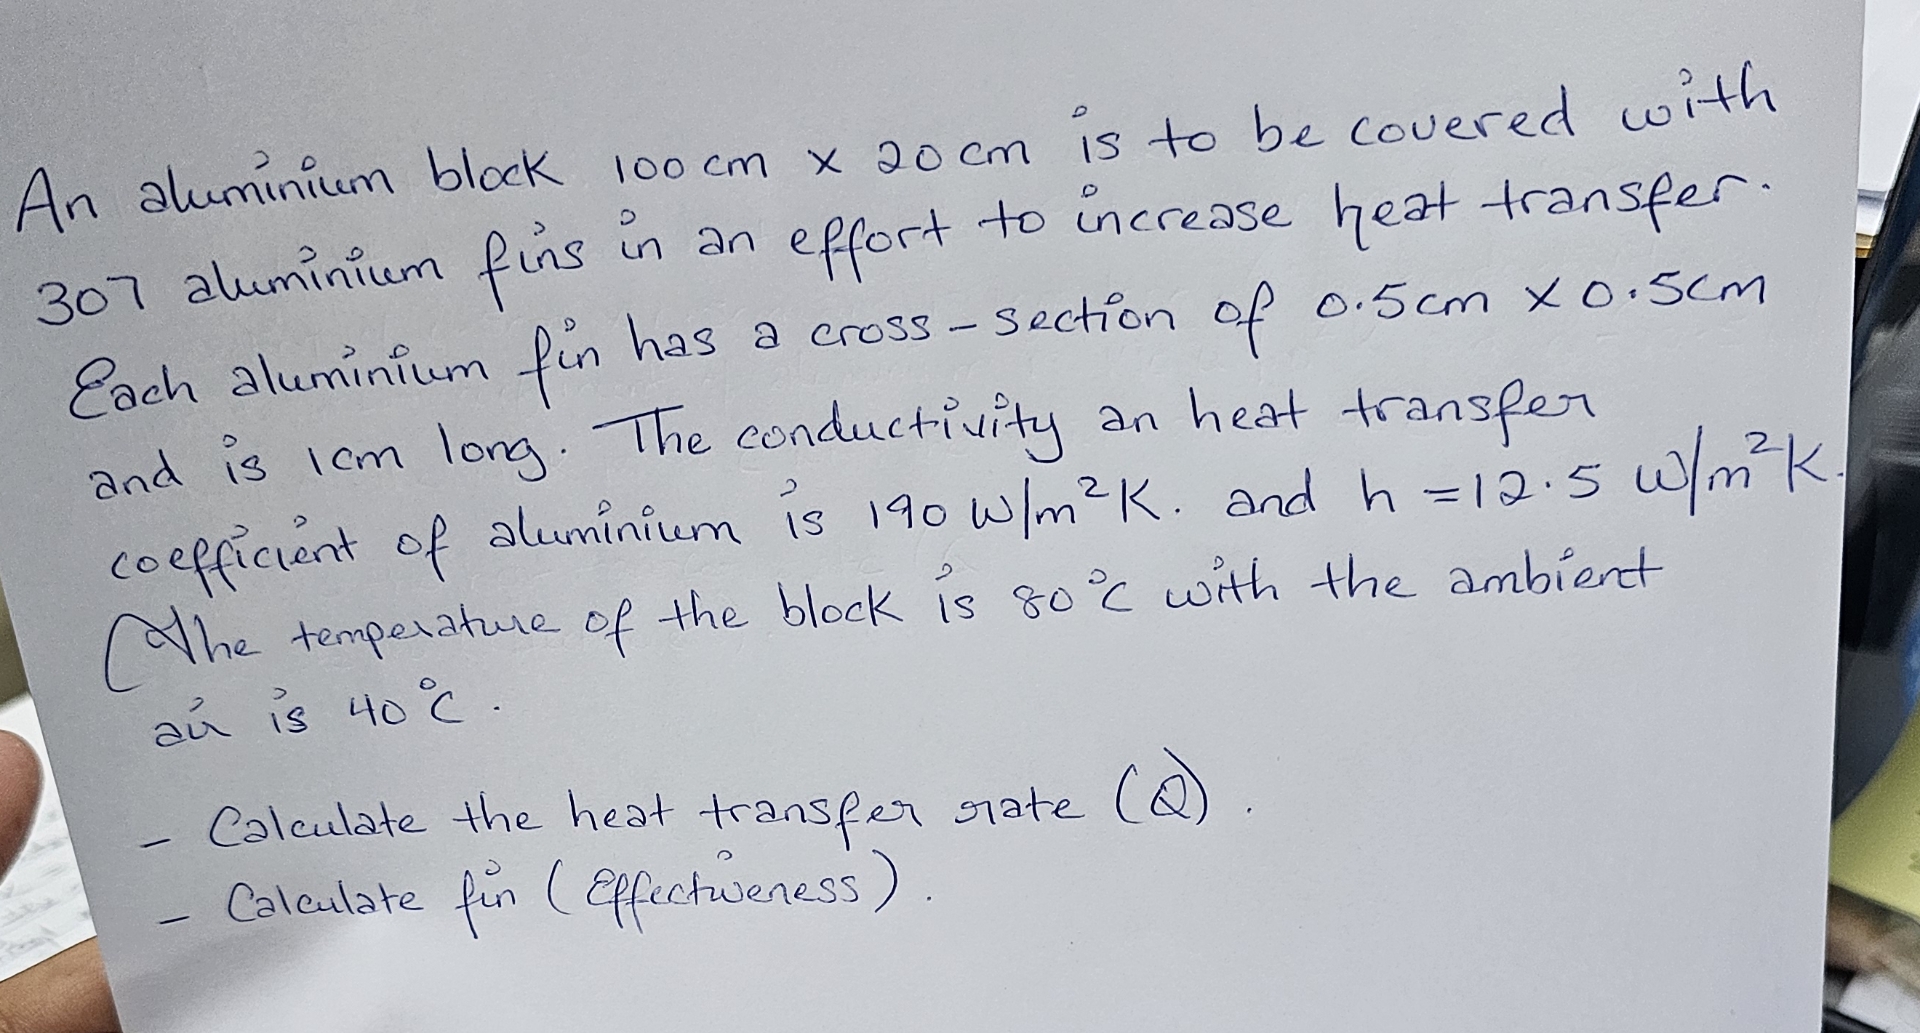 An aluminium block 100 cm x 20 cm is to be covered with
307 aluminium fins in an effort to increase heat transfer.
Each aluminium fin has a cross-section of 0.5cm x 0.5cm
and is 1cm long. The conductivity an heat transfer
coefficient of aluminium is 190 W/m²K. and h = 12.5 W/m²K.
The temperature of the block is 80°C with the ambient
air is 40°C.
- Calculate the heat transfer rate (Q).
- Calculate fin (Effectiveness).